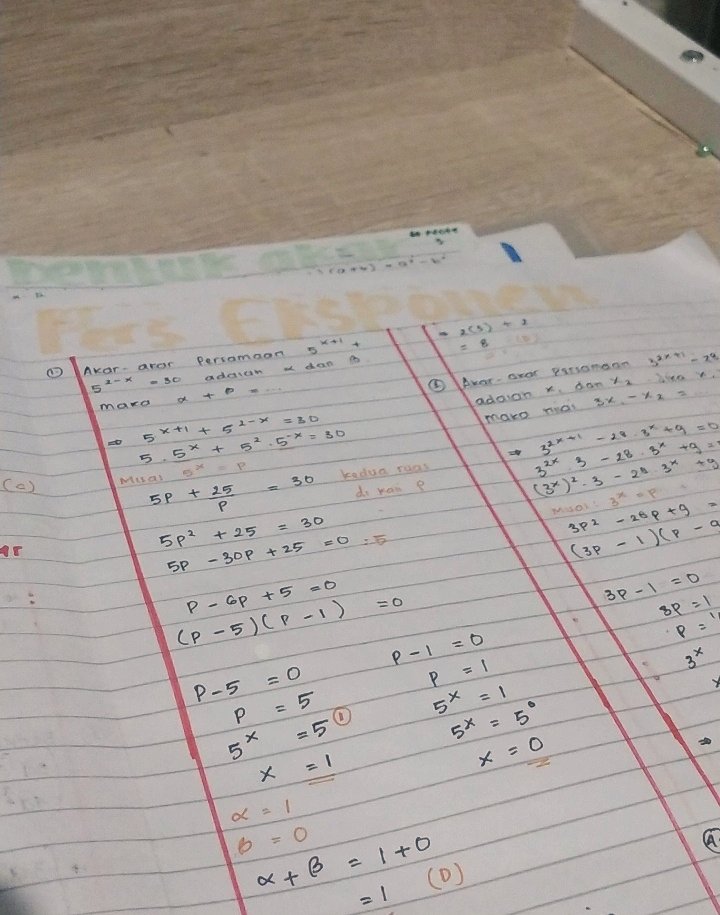 Pers Eksponen
① Akar-akar Persamaan 5^{x+1} +
5^{2-x} = 30 adalah α dan β
maka α + β = ...
⇒ 5^{x+1} + 5^{2-x} = 30
5 . 5^x + 5^2 . 5^{-x} = 30
Misal 5^x = P
5P + 25/P = 30 kedua ruas
di kali P
5P^2 + 25 = 30
5P - 30P + 25 = 0 :5
P - 6P + 5 = 0
(P - 5)(P - 1) = 0
P - 5 = 0
P = 5
5^x = 5^①
x = 1
P - 1 = 0
P = 1
5^x = 1
5^x = 5^0
x = 0
α = 1
β = 0
α + β = 1 + 0
= 1 (D)
= 8
Akar-akar Persamaan 3^{2x+1} - 28
adalah x₁ dan x₂ Jika x
maka nilai 3x₁ - x₂ =
⇒ 3^{2x+1} - 28 . 3^x + 9 = 0
3^{2x} . 3 - 28 . 3^x + 9 =
(3^x)^2 . 3 - 28 3^x + 9
Misal: 3^x = P
3P^2 - 28P + 9 =
(3P - 1)(P - 9
3P - 1 = 0
3P = 1
P = 1/
3^x
(c)